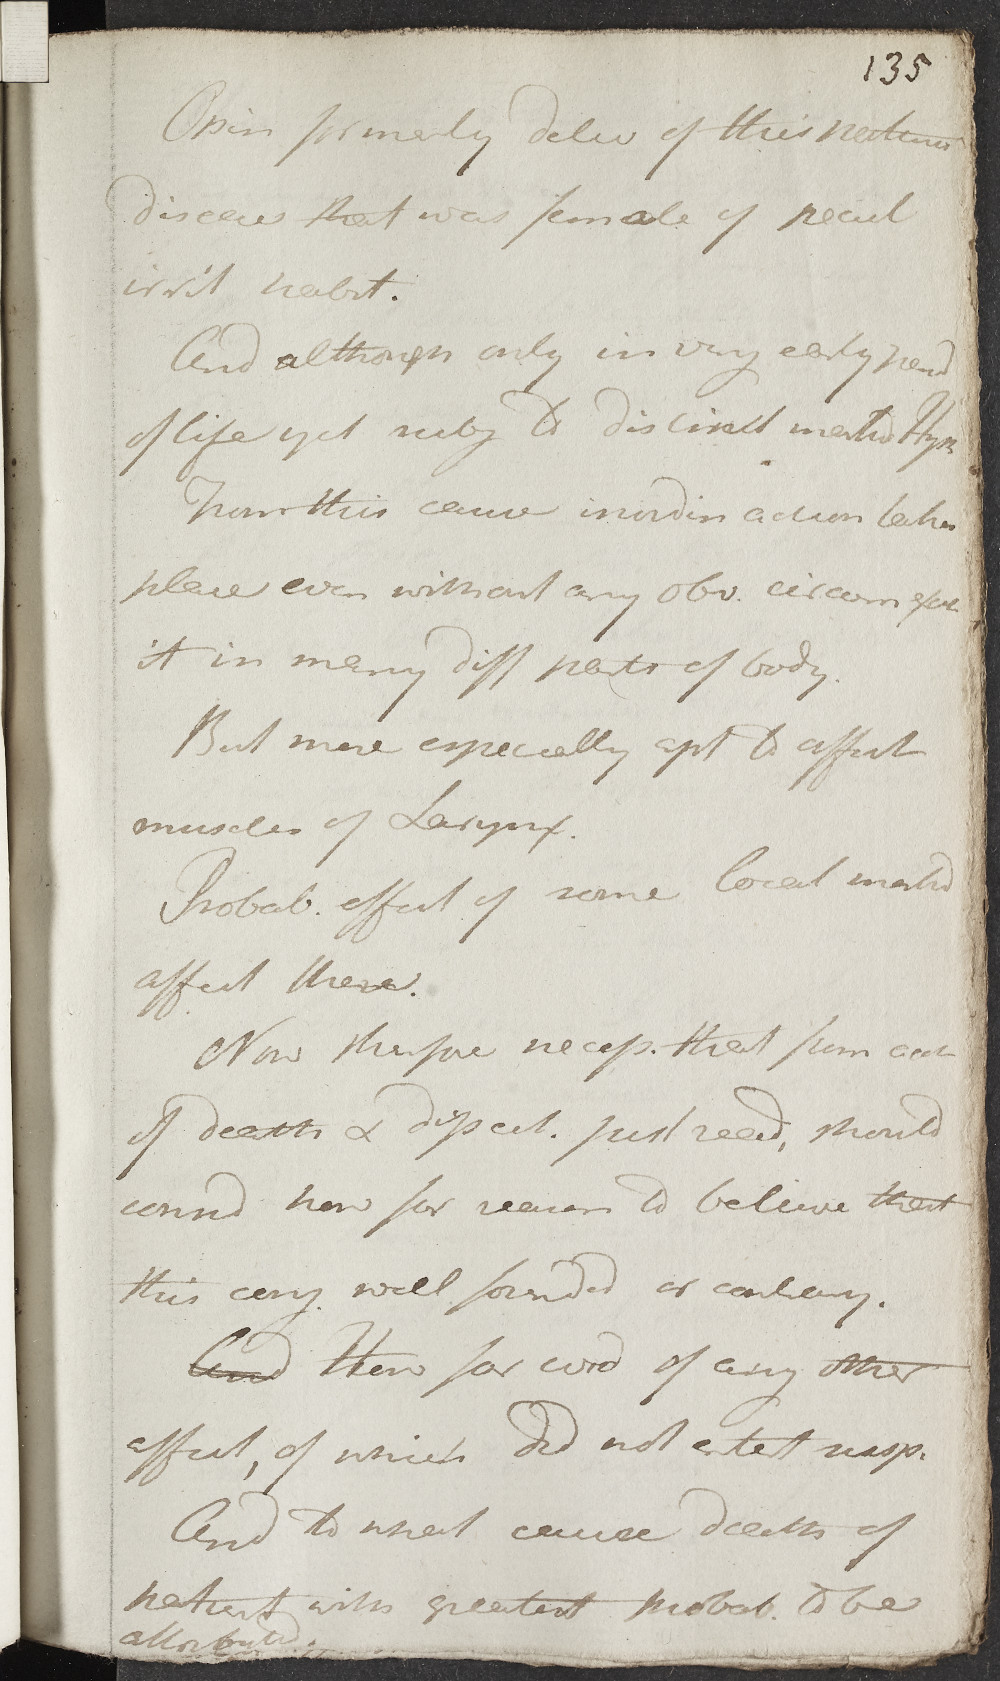 135
Opin formerly deliv of this patients
disease that was female of pecul
irrit habit.
And although only in very early period
of life yet subj to distinct marked Hys
From this cause inordin action takes
place even without any obv. circum
it in many diff parts of body.
But more especially apt to affect
muscles of Larynx.
Probab. effect of some local marked
affect there.
Now therefore necess. that from acct
of death & dissect. just read, should
consid how far reason to believe that
this conj. well founded or contrary.
And How far evid of any other
affect, of which did not entert susp.
And to what cause death of
patient with greatest probab. to be
attributed.